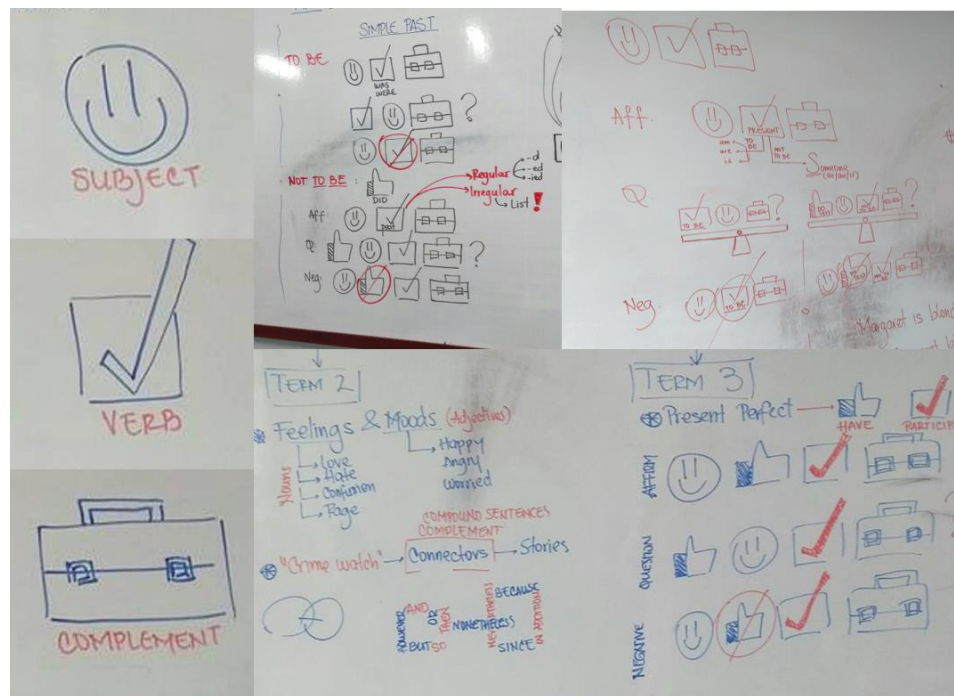 SUBJECT
VERB
COMPLEMENT
SIMPLE PAST
TO BE
WAS
WERE
?
NOT TO BE:
DID
Regular
-d
-ed
-ied
Irregular
List !
Aff
PAST
Q
?
Neg
Aff.
PRESENT
am
are
is
TO BE
NOT TO BE
Someone
Q
TO BE
?
?
Neg
TO BE
Margaret is
TERM 2
Feelings & Moods (Adjectives)
Nouns
Love
Hate
Confusion
Rage
Happy
Angry
Worried
COMPOUND SENTENCES
COMPLEMENT
"Crime watch" Connectors Stories
HOWEVER
AND
OR
THEN
BUT SO
NONETHELESS
NEVERTHELESS
BECAUSE
SINCE
IN ADDITION
TERM 3
Present Perfect
HAVE
PARTICIP
AFFIRM
QUESTION
NEGATIVE